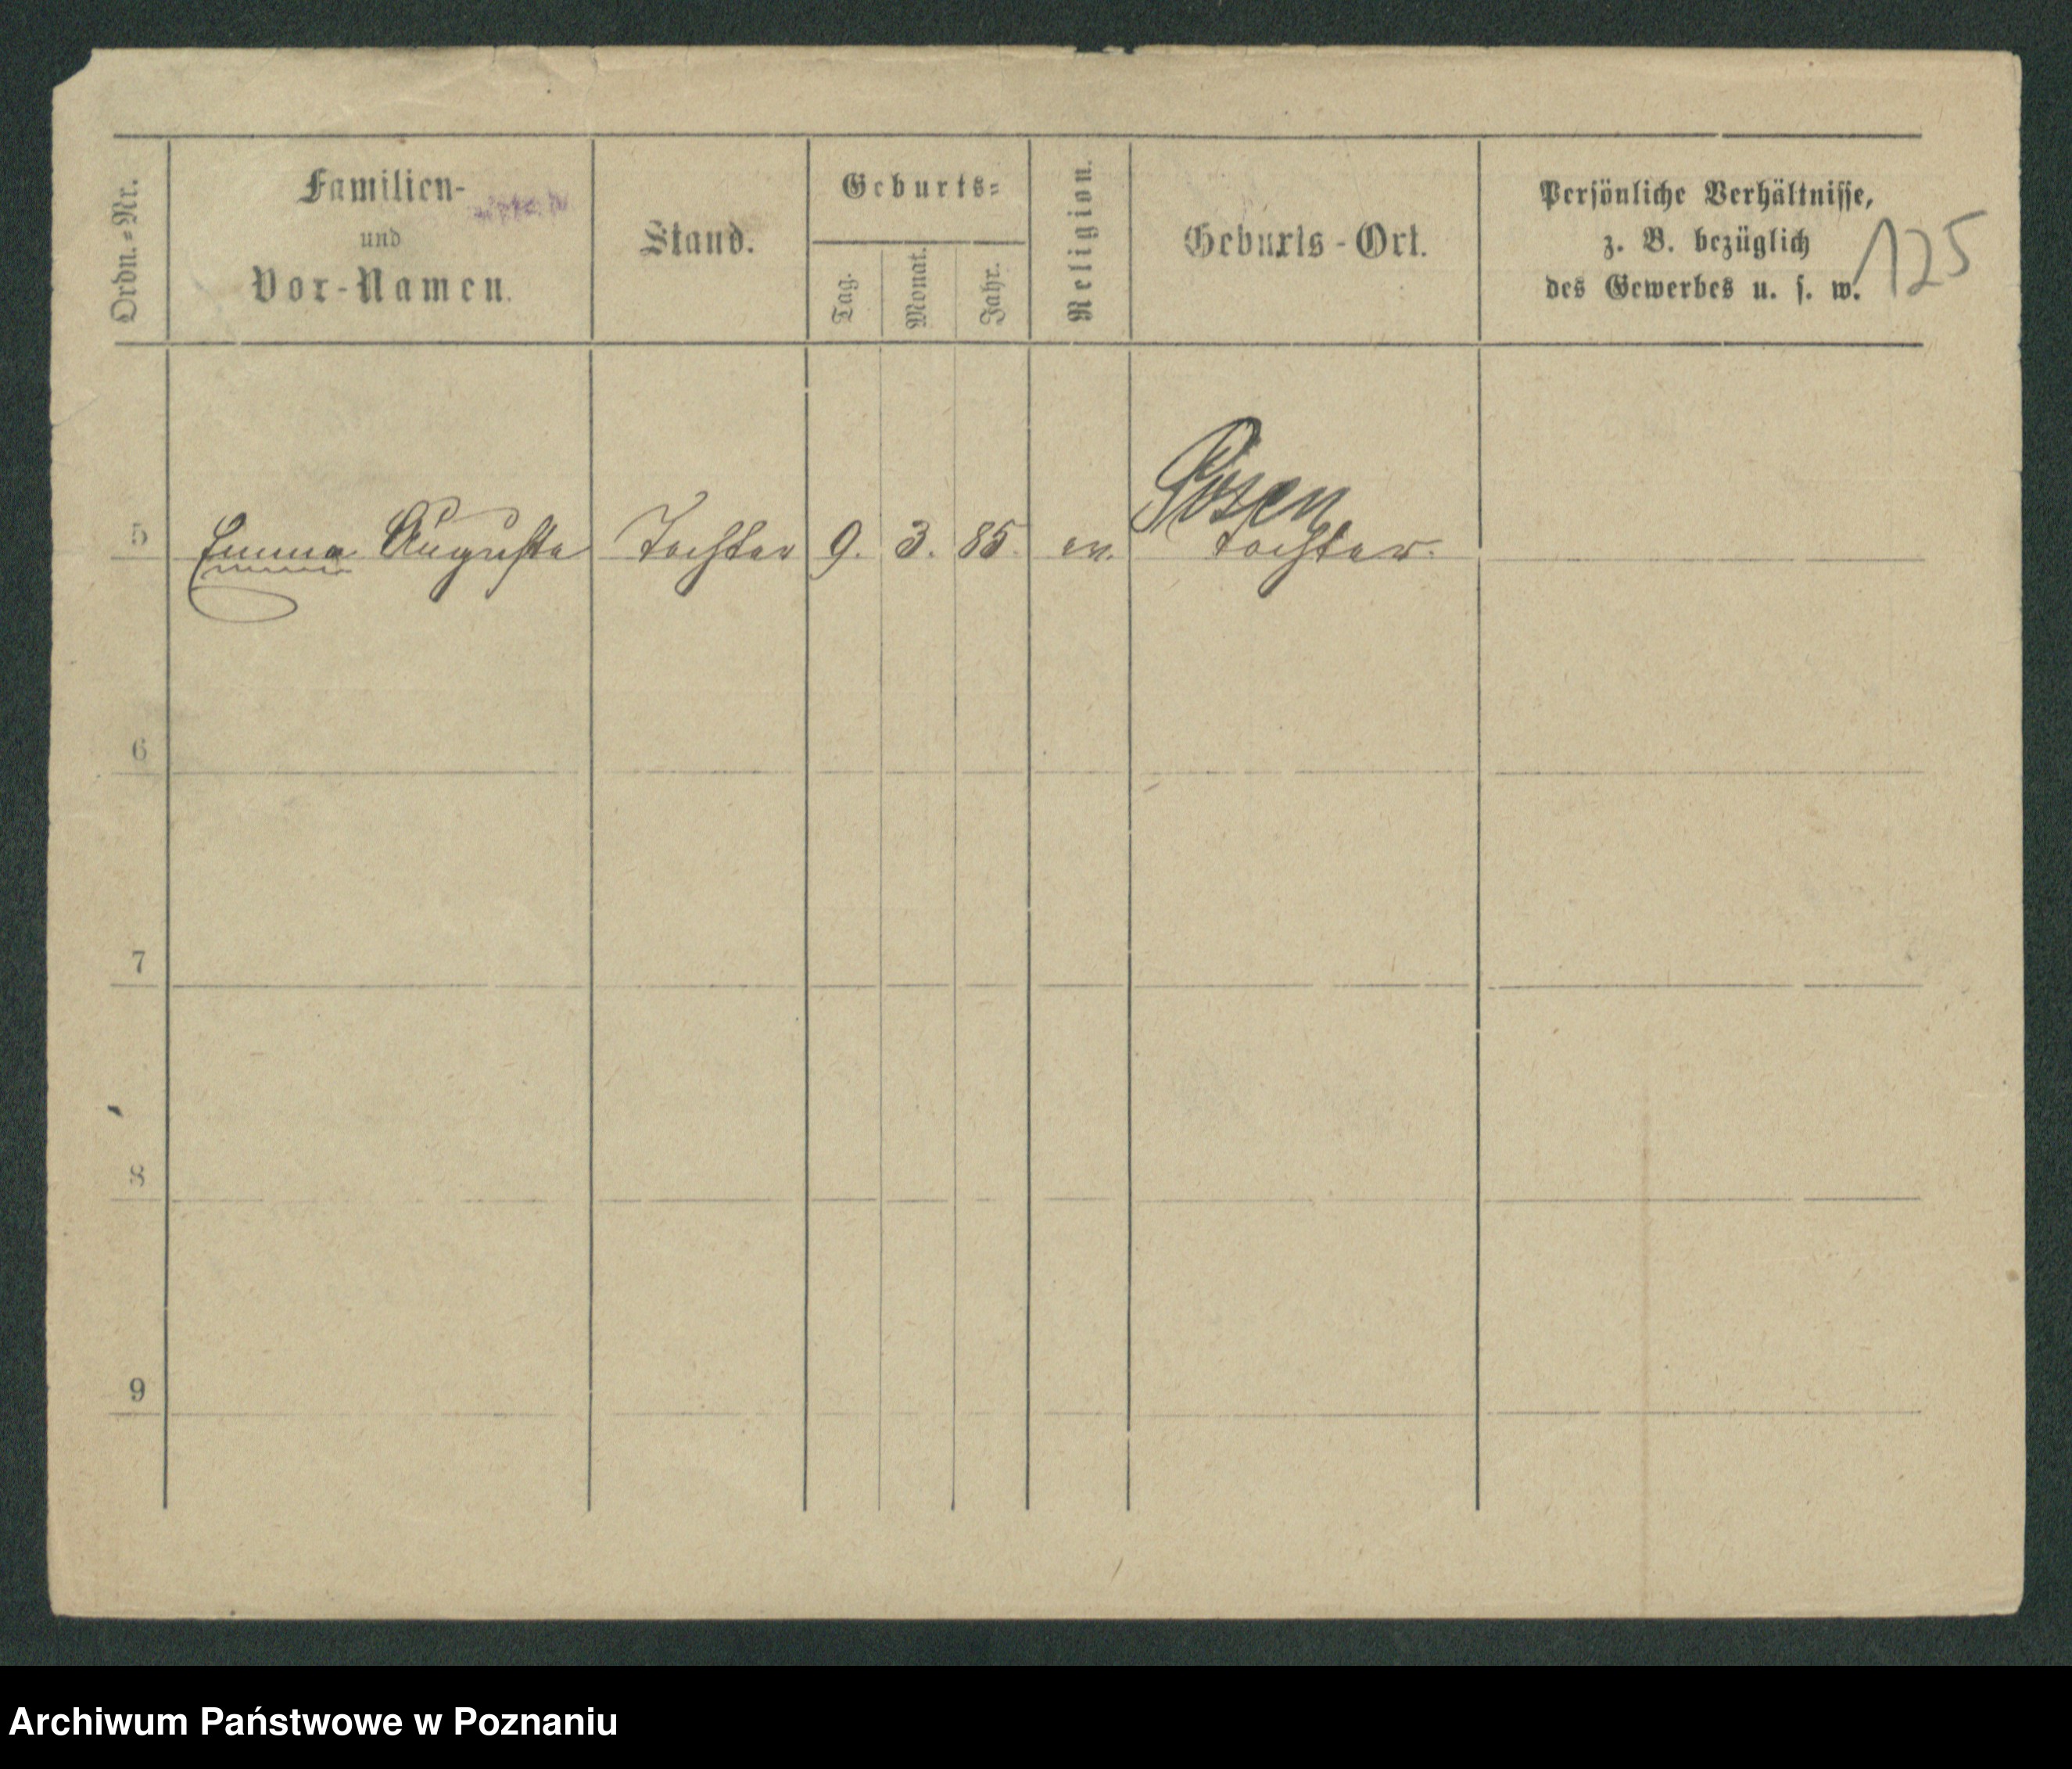 Ordn.-Nr.
Familien-
und
Vor-Namen.
Stand.
Geburts-
Tag.
Monat.
Jahr.
Religion.
Geburts-Ort.
Persönliche Verhältnisse,
z. B. bezüglich
des Gewerbes u. s. w.
125
Posen
5 Emma Auguste Tochter 9. 3. 85. ev. Tochter.
6
7
8
9
Archiwum Państwowe w Poznaniu